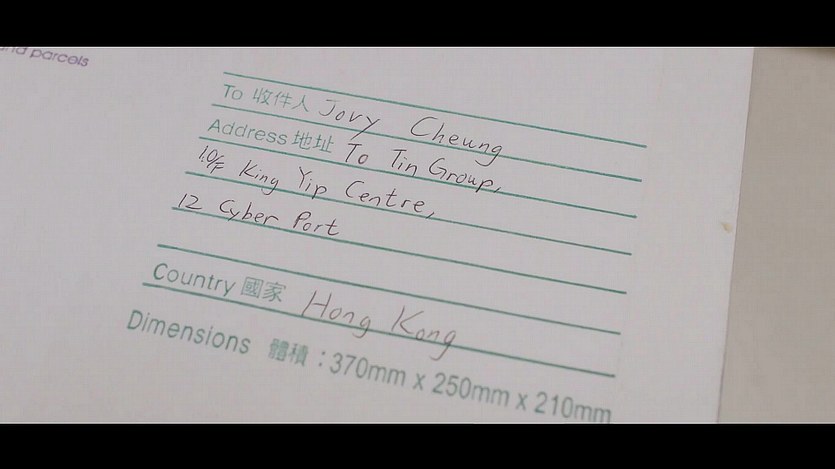 and parcels
To 收件人 Jovy Cheung
Address 地址 To Tin Group,
10/F King Yip Centre,
12 Cyber Port
Country 國家 Hong Kong
Dimensions 體積：370mm x 250mm x 210mm